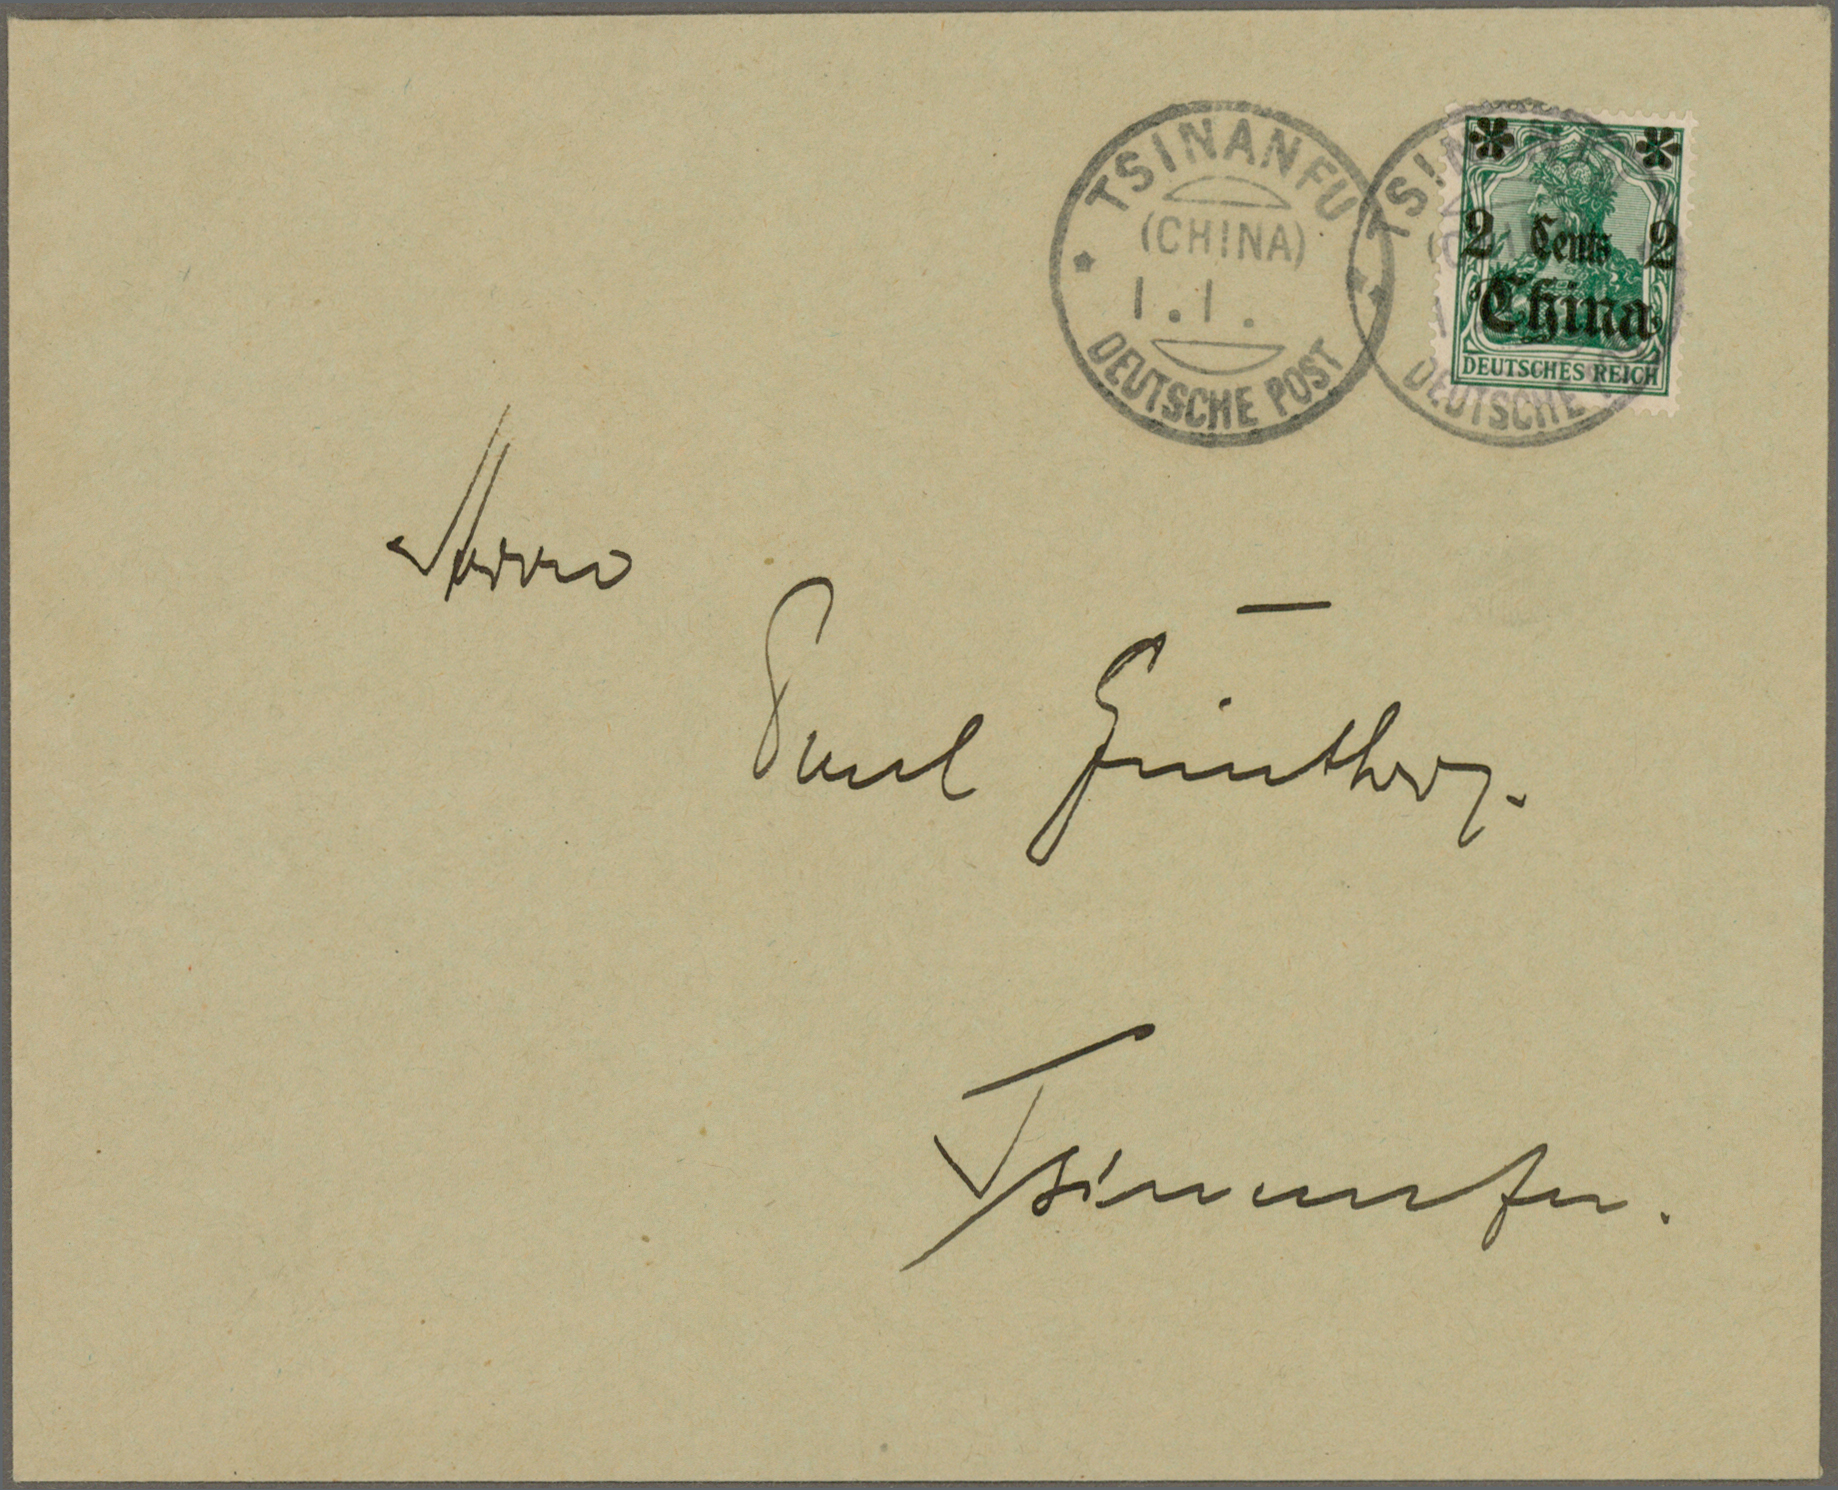 TSINANFU
(CHINA)
1.1.
DEUTSCHE POST
TSINANFU
DEUTSCHE
2 Cents 2
China
DEUTSCHES REICH
Herrn
Paul Günther.
Tsinanfu.